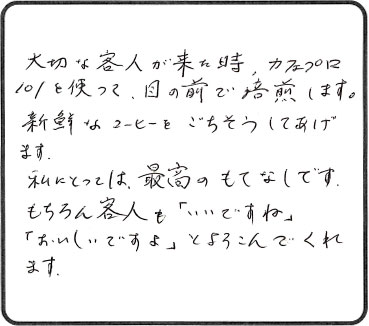 大切な客人が来た時、カフェプロ
101を使って、目の前で焙煎します。
新鮮なコーヒーをごちそうしてあげ
ます.
私にとっては、最高のもてなしです.
もちろん客人も「いいですね」
「おいしいですよ」とよろこんでくれ
ます.